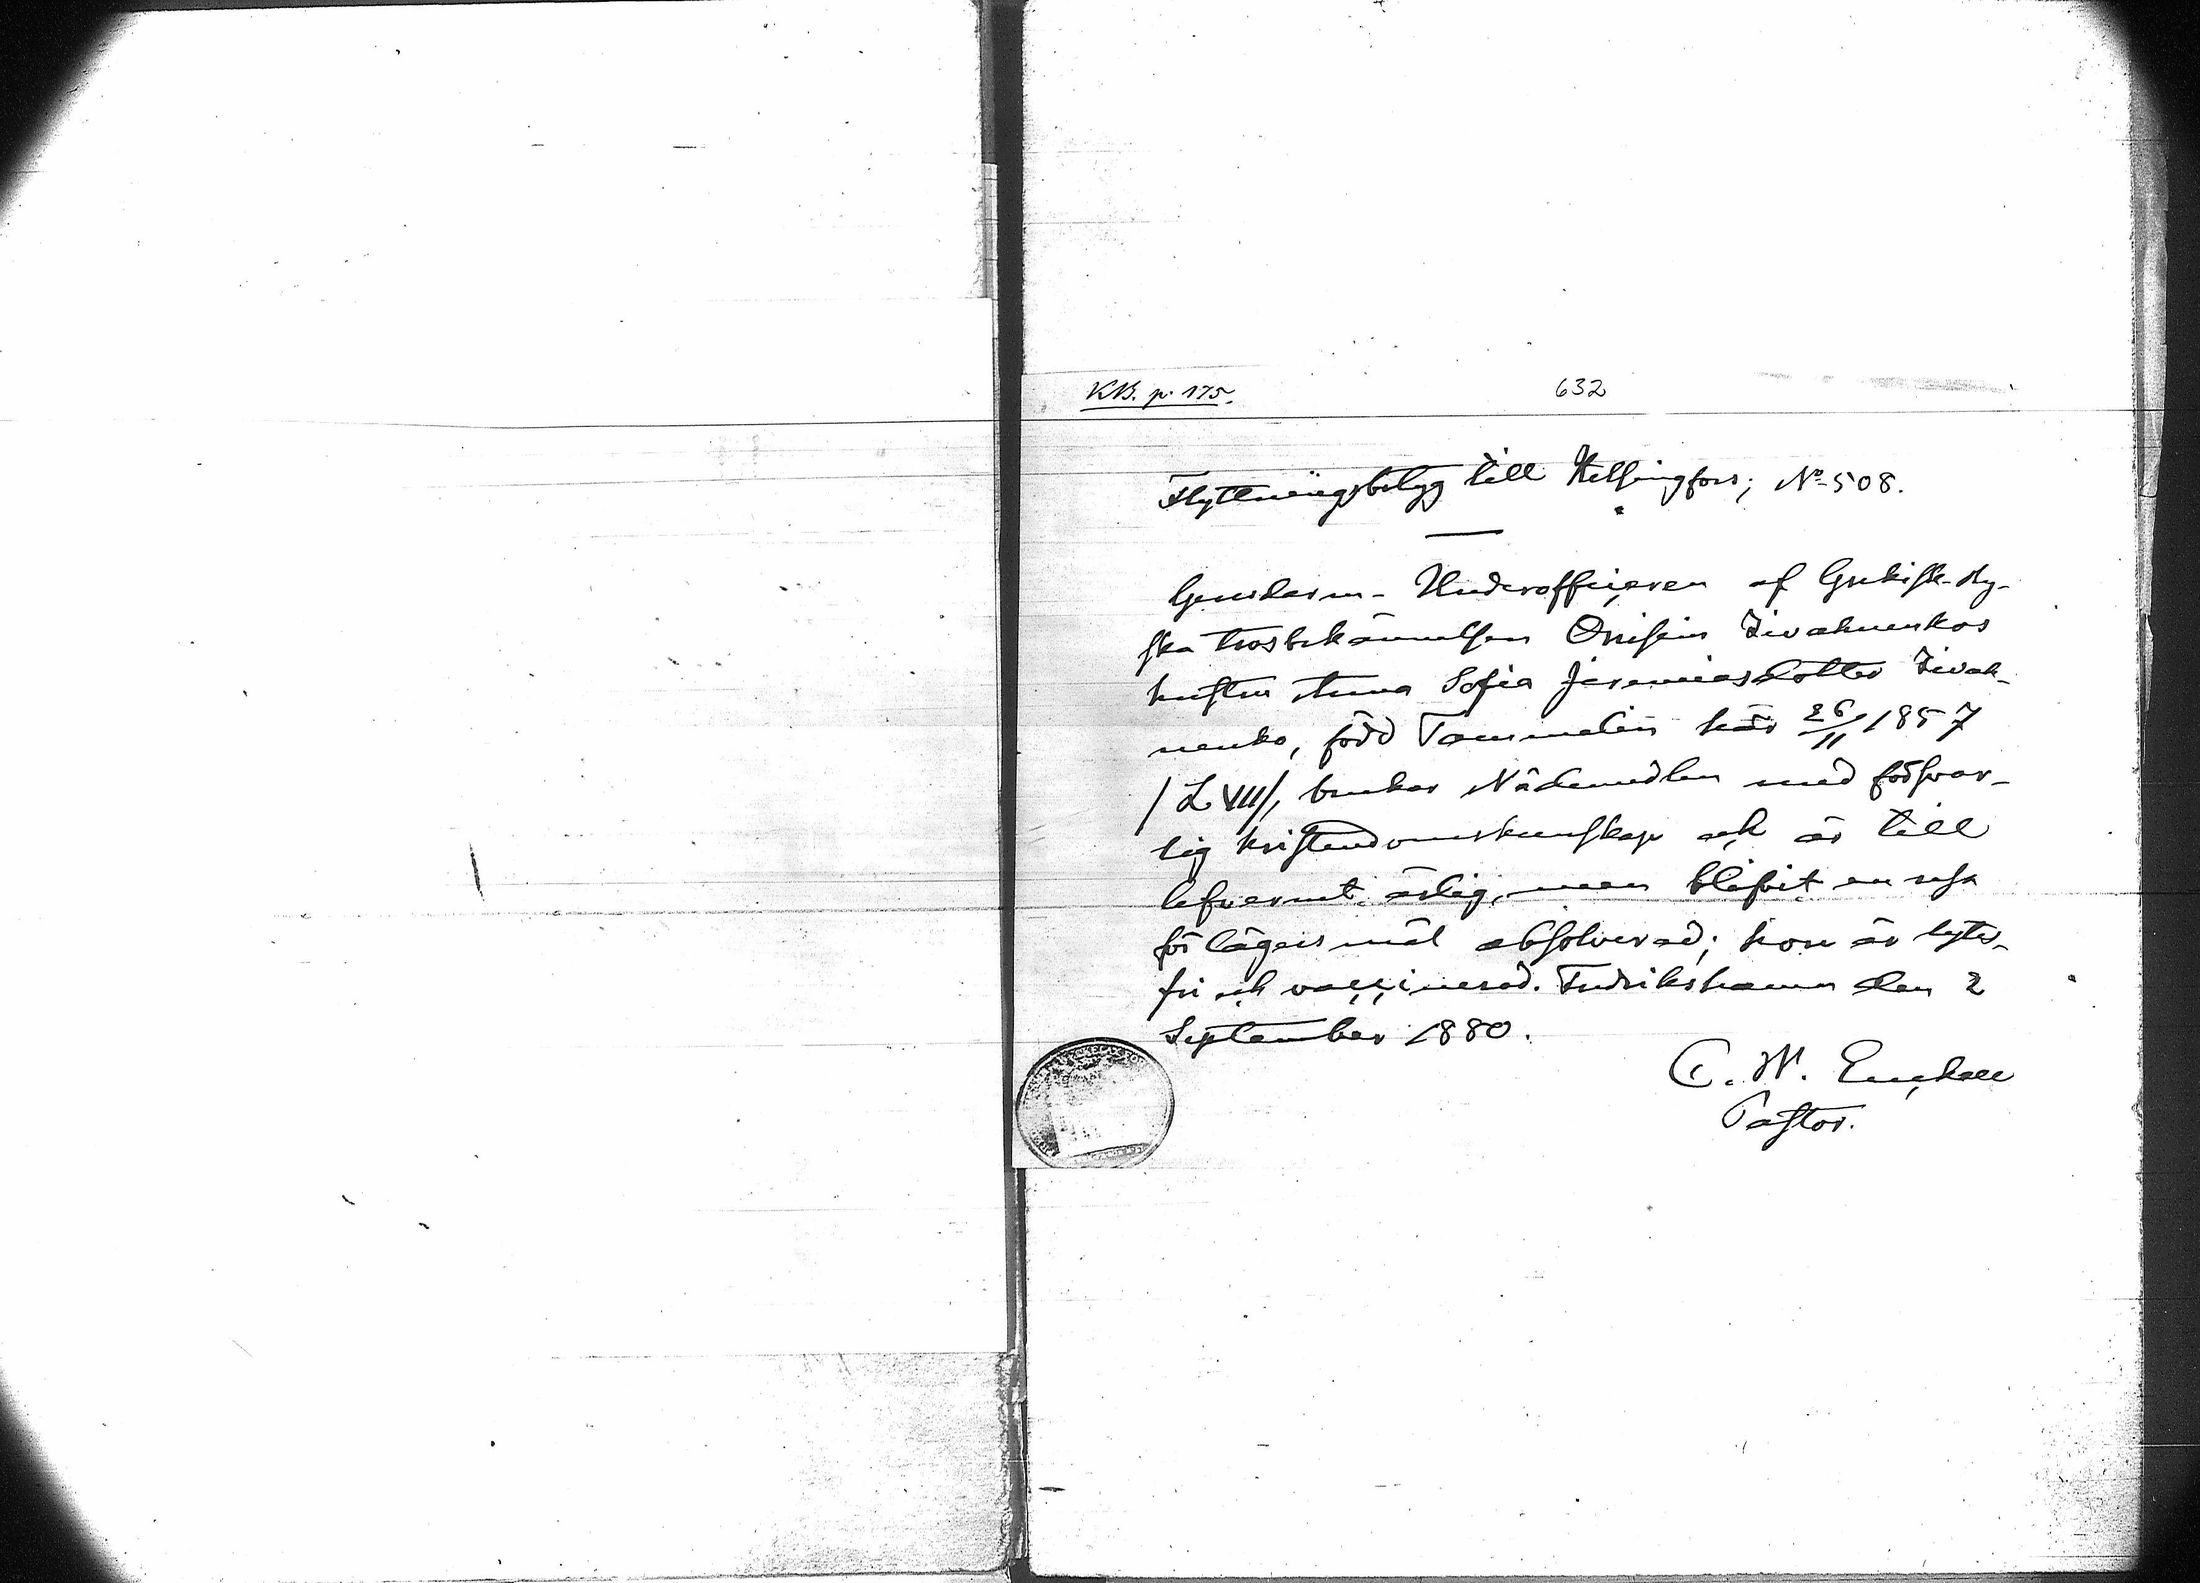 KB. p. 175.
632
Flyttningsbetyg till Helsingfors; No 508.
Gensdarm-Underofficeren af Grekisk-Ry-
ska trosbekännelsen Onisim Zivahnenkos
hustru Anna Sofia Jeremiasdotter Zivah-
nenko, född Tammelin här 26/11 1857
/LVII/, brukar Nådemedlen med försvar-
lig kristendomskunskap och är till
lefvernet ärlig, men blifvit en resa
för lägersmål absolverad; hon är lytes-
fri och vaccinerad. Fredrikshamn den 2
September 1880.
C. W. Enckell
Pastor.